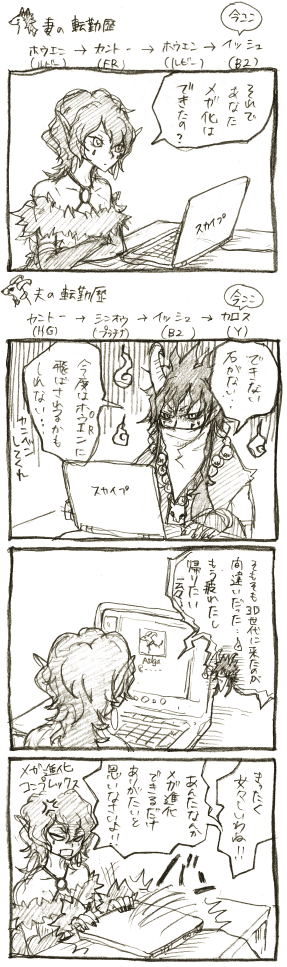 妻の転勤歴
今ココ
ホウエン → カントー → ホウエン → イッシュ
(ルビー) (FR) (ルビー) (B2)
それで
あなた
メガ化は
できたの?
スカイプ
夫の転勤歴
今ココ
カントー → シンオウ → イッシュ → カロス
(HG) (プラチナ) (B2) (Y)
できない
石がない‥
今度はホウエンに
OR
飛ばされるかも
しれない‥‥
カンベン
してくれ
スカイプ
そもそも3D世代に来たのが
間違いだった‥
もう疲れたし
帰りたい
メガ進化
コンプレックス
まったく
女々しいわね!!
あんたなんか
メガ進化
できるだけ
ありがたいと
思いなさいよ!!
バン